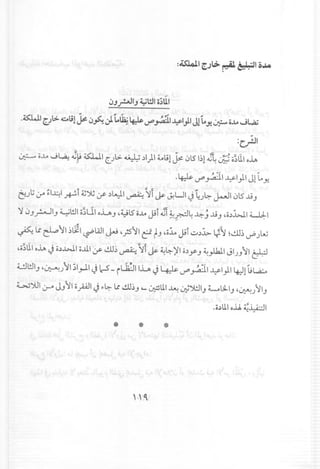 مدة التبليغ لمقيم خارج المملكة:
المادة الثانية والعشرون
تضاف مدة ستين يوماً إلى المواعيد المنصوص عليها نظاماً لمن يكون محل إقامته خارج المملكة.
الشرح:
هذه المادة تُبيِّن بأنَّه إذا كان محل إقامة المراد تبليغه خارج المملكة فإنَّه يضاف مدة ستين
يوماً إلى المواعيد المنصوص عليها.
وقد كان العمل جارياً في السابق على ألاَّ ينقص الميعاد عن ثلاثة أشهر ابتداءً من تاريخ
الجلسة المحددة، وقد وُجد بالتجربة أنَّه أقل مدة كافية، وهذه المادة الثانية والعشرون لا
تعارض ذلك؛ لأنَّها حددت أقل مدة، ولم تمنع الأكثر، فعلى القاضي اتخاذ الأصلح مما يكفي
لتبليغ الأوراق المطلوبة وعودة الإجابة على ألاَّ ينقص ذلك عن المدة المحددة في هذه المادة،
مضافاً إليها المواعيد المنصوص عليها في هذا النظام ـ كما في المواد الأربعين، والثالثة
والأربعين، والخامسة والثلاثين بعد المائتين ـ وذلك مما جاء في الفقرة الأولى من اللائحة
التنفيذيَّة لهذه المادة.
١٠١٩